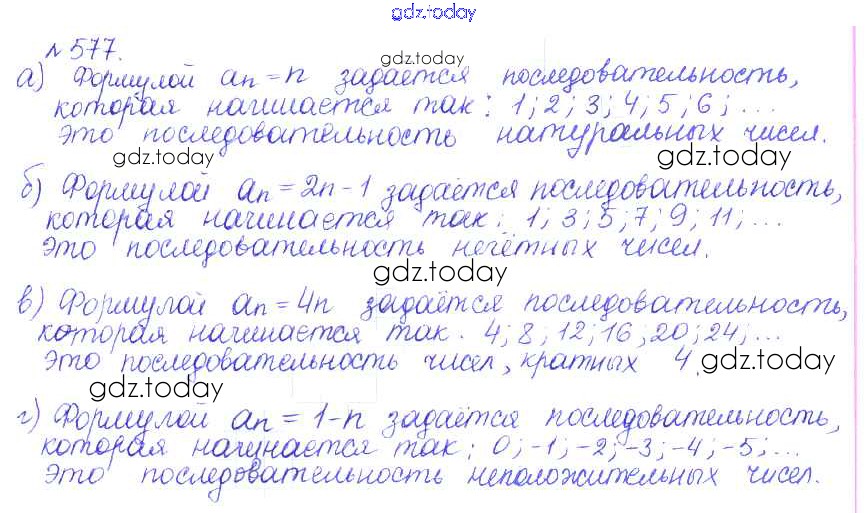 gdz.today
№ 577.
gdz.today
а) Формулой aₙ = n задаётся последовательность,
которая начинается так: 1; 2; 3; 4; 5; 6; ...
Это последовательность натуральных чисел.
gdz.today gdz.today
б) Формулой aₙ = 2n - 1 задаётся последовательность,
которая начинается так: 1; 3; 5; 7; 9; 11; ...
Это последовательность нечётных чисел.
gdz.today
в) Формулой aₙ = 4n задаётся последовательность,
которая начинается так. 4; 8; 12; 16; 20; 24; ...
Это последовательность чисел, кратных 4.
gdz.today gdz.today
г) Формулой aₙ = 1 - n задаётся последовательность,
которая начинается так: 0; -1; -2; -3; -4; -5; ...
Это последовательность неположительных чисел.